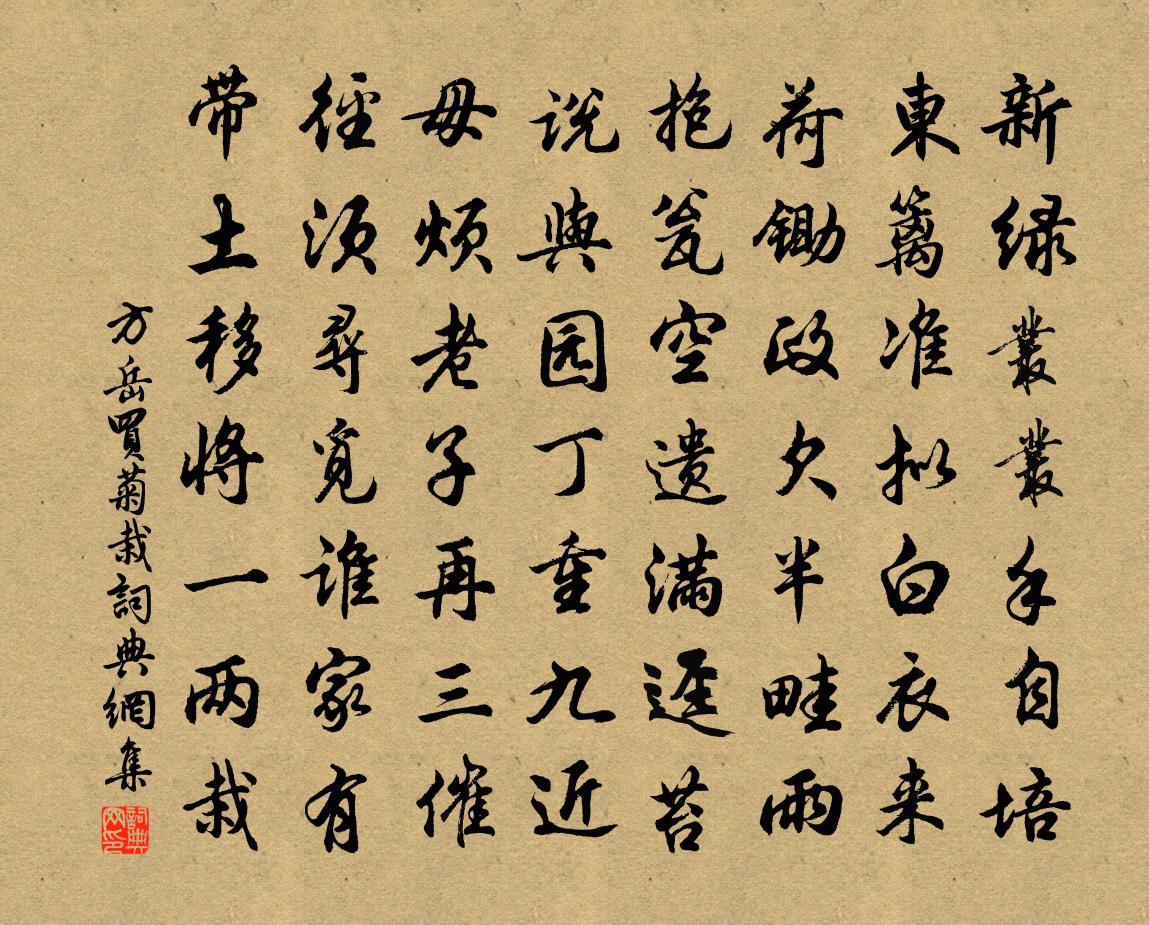 新緑叢叢手自培
東篱准拟白衣来
荷锄政欠半畦雨
抱瓮空遗满逕苔
说與园丁重九近
毋烦老子再三催
徑须尋覓谁家有
带土移将一两栽
方岳買菊栽詞典網集
詞典网印